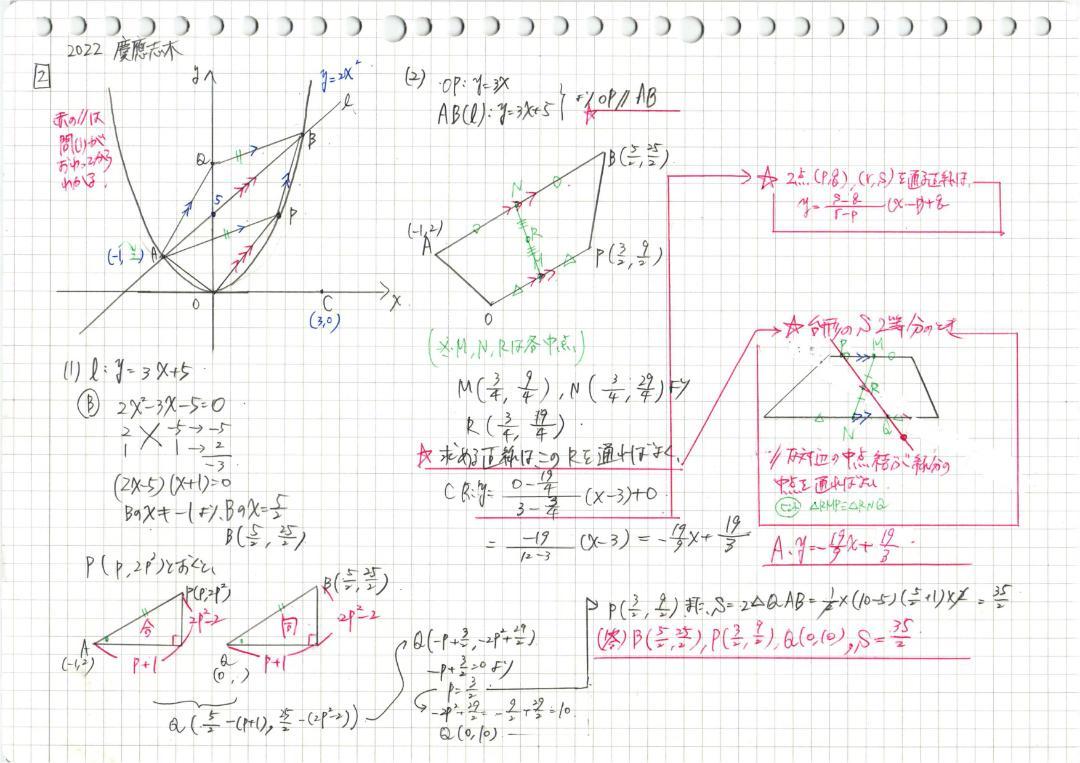 2022 慶應志木
2
y
y=2x²
l
赤の//は
問(1)が
おわってから
わかる。
B
Q
S
P
A
(-1, 2)
O
C
x
(3,0)
(1) l: y=3x+5
Ⓑ 2x²-3x-5=0
2 -5→-5
1 1→2
-3
(2x-5)(x+1)=0
Bのx≠-1より、Bのx=5/2
B(5/2, 25/2)
P(p, 2p²)とおくと、
P(p, 2p²)
合
2p²-2
A
(-1,2)
p+1
B(5/2, 25/2)
同
2p²-2
Q
(0, )
p+1
Q(5/2-(p+1), 25/2-(2p²-2))
Q(-p+3/2, -2p²+29/2)
-p+3/2=0より
p=3/2
-2p²+29/2=-9/2+29/2=10
Q(0,10)
(2) OP: y=3x
AB(l): y=3x+5 } より OP//AB
☆
B(5/2, 25/2)
N
R
M
(-1,2)
A
P(3/2, 9/2)
O
(※M,N,Rは各中点)
M(3/4, 9/4), N(3/4, 29/4)より
R(3/4, 19/4)
☆求める直線はこのRを通ればよく、
CR: y= (0-19/4)/(3-3/4) (x-3)+0
= -19/(12-3) (x-3) = -19/9x+19/3
☆2点(p,q),(r,s)を通る直線は、
y= (s-q)/(r-p) (x-p)+q
☆台形のS2等分のとき
P M
R
N Q
//な対辺の中点結ぶ線分の
中点を通ればよい
△RMP≡△RNQ
A. y=-19/9x+19/3
P(3/2, 9/2) また、S=2△QAB=1/2×(10-5)(5/2+1)×2=35/2
(答) B(5/2, 25/2), P(3/2, 9/2), Q(0,10), S=35/2